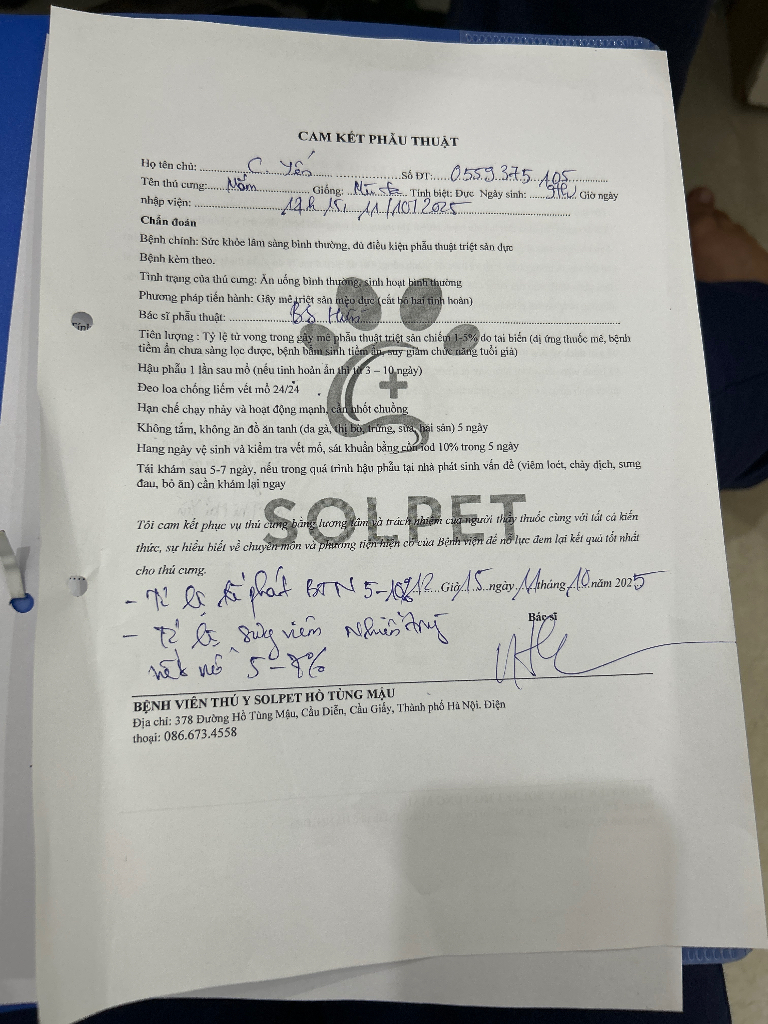 CAM KẾT PHẪU THUẬT
Họ tên chủ: C Yến Số ĐT: 0559.375.105
Tên thú cưng: Nấm Giống: Tính biệt: Đực Ngày sinh: Giờ ngày
nhập viện: 12h 15, 11/10/2025
Chẩn đoán
Bệnh chính: Sức khỏe lâm sàng bình thường, đủ điều kiện phẫu thuật triệt sản đực
Bệnh kèm theo.
Tình trạng của thú cưng: Ăn uống bình thường, sinh hoạt bình thường
Phương pháp tiến hành: Gây mê triệt sản mèo đực (cắt bỏ hai tinh hoàn)
Bác sĩ phẫu thuật: BS
Tiên lượng : Tỷ lệ tử vong trong gây mê phẫu thuật triệt sản chiếm 1-5% do tai biến (dị ứng thuốc mê, bệnh
tiềm ẩn chưa sàng lọc được, bệnh bẩm sinh tiềm ẩn, suy giảm chức năng tuổi già)
Hậu phẫu 1 lần sau mổ (nếu tinh hoàn ẩn thì từ 3 – 10 ngày)
Đeo loa chống liếm vết mổ 24/24
Hạn chế chạy nhảy và hoạt động mạnh, cần nhốt chuồng
Không tắm, không ăn đồ ăn tanh (da gà, thịt bò, trứng, sữa, hải sản) 5 ngày
Hang ngày vệ sinh và kiểm tra vết mổ, sát khuẩn bằng cồn iod 10% trong 5 ngày
Tái khám sau 5-7 ngày, nếu trong quá trình hậu phẫu tại nhà phát sinh vấn đề (viêm loét, chảy dịch, sưng
đau, bỏ ăn) cần khám lại ngay
SOLPET
Tôi cam kết phục vụ thú cưng bằng lương tâm và trách nhiệm của người thầy thuốc cùng với tất cả kiến
thức, sự hiểu biết về chuyên môn và phương tiện hiện có của Bệnh viện để nỗ lực đem lại kết quả tốt nhất
cho thú cưng.
12 Giờ 15 ngày 11 tháng 10 năm 2025
- Tỉ lệ kế phát BTN 5-10%
- Tỉ lệ sưng viêm nhiễm trùng
vết mổ 5-8%
Bác sĩ
BỆNH VIỆN THÚ Y SOLPET HỒ TÙNG MẬU
Địa chỉ: 378 Đường Hồ Tùng Mậu, Cầu Diễn, Cầu Giấy, Thành phố Hà Nội. Điện
thoại: 086.673.4558